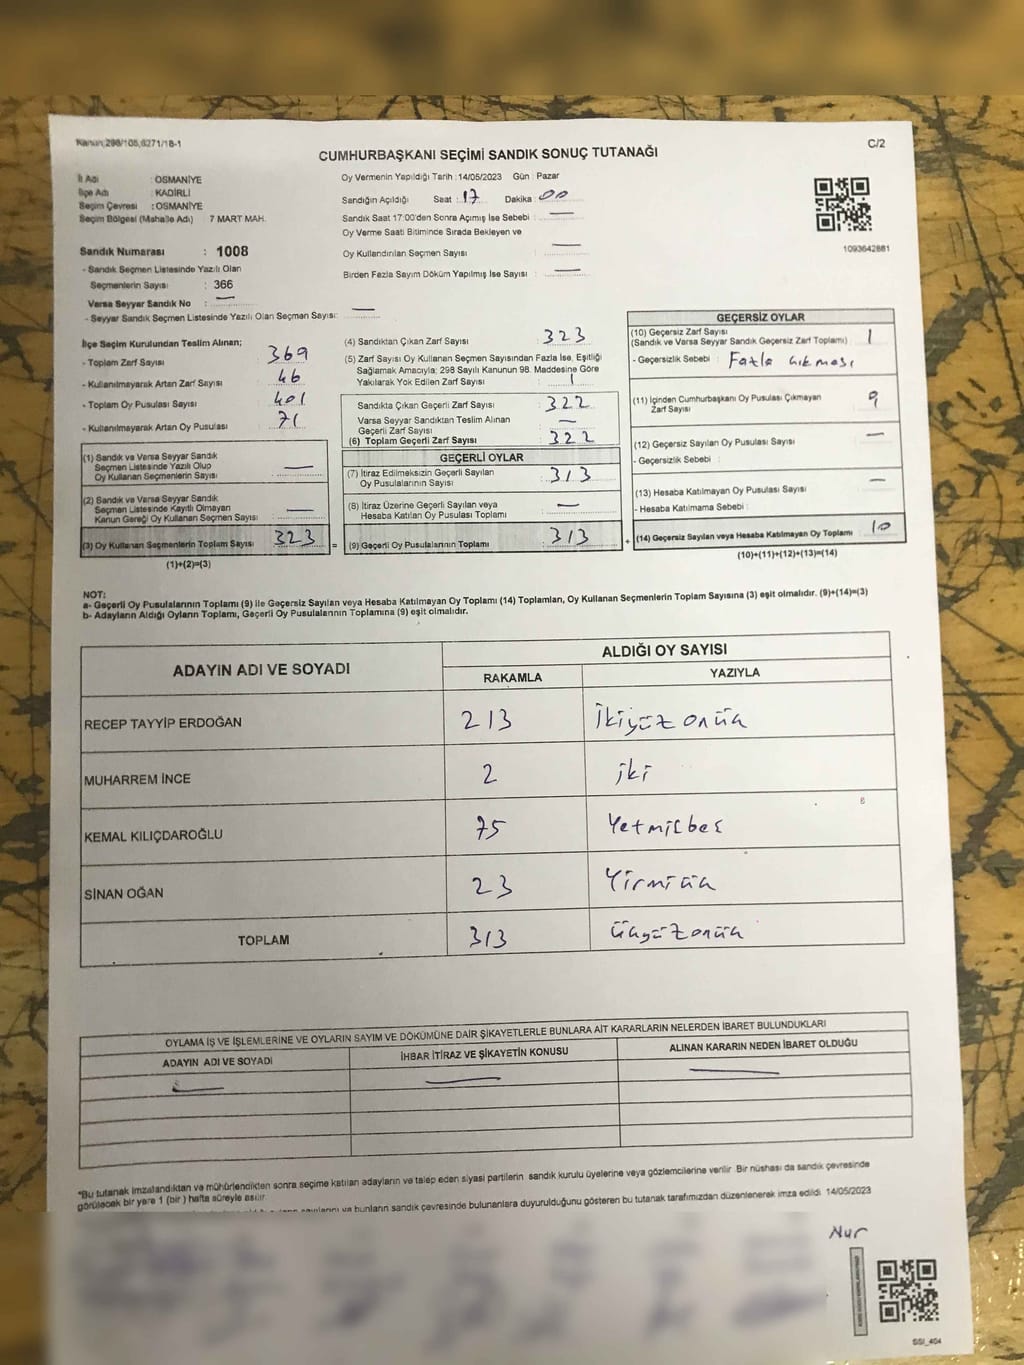 Kanun:298/105,6271/18-1
C/2
CUMHURBAŞKANI SEÇİMİ SANDIK SONUÇ TUTANAĞI
İl Adı : OSMANİYE
İlçe Adı : KADİRLİ
Seçim Çevresi : OSMANİYE
Seçim Bölgesi (Mahalle Adı) : 7 MART MAH.
Sandık Numarası : 1008
- Sandık Seçmen Listesinde Yazılı Olan
Seçmenlerin Sayısı : 366
Varsa Seyyar Sandık No : —
- Seyyar Sandık Seçmen Listesinde Yazılı Olan Seçmen Sayısı: —
Oy Vermenin Yapıldığı Tarih :14/05/2023 Gün : Pazar
Sandığın Açıldığı Saat : 17 Dakika : 00
Sandık Saat 17:00'den Sonra Açımış İse Sebebi : —
Oy Verme Saati Bitiminde Sırada Bekleyen ve
Oy Kullandırılan Seçmen Sayısı : —
Birden Fazla Sayım Döküm Yapılmış İse Sayısı : —
1093642881
İlçe Seçim Kurulundan Teslim Alınan;
- Toplam Zarf Sayısı : 369
- Kullanılmayarak Artan Zarf Sayısı : 46
- Toplam Oy Pusulası Sayısı : 401
- Kullanılmayarak Artan Oy Pusulası : 71
(1) Sandık ve Varsa Seyyar Sandık
Seçmen Listesinde Yazılı Olup
Oy Kullanan Seçmenlerin Sayısı : —
(2) Sandık ve Varsa Seyyar Sandık
Seçmen Listesinde Kayıtlı Olmayan
Kanun Gereği Oy Kullanan Seçmen Sayısı : —
(3) Oy Kullanan Seçmenlerin Toplam Sayısı : 323
(1)+(2)=(3)
(4) Sandıktan Çıkan Zarf Sayısı : 323
(5) Zarf Sayısı Oy Kullanan Seçmen Sayısından Fazla İse, Eşitliği
Sağlamak Amacıyla; 298 Sayılı Kanunun 98. Maddesine Göre
Yakılarak Yok Edilen Zarf Sayısı : 1
Sandıkta Çıkan Geçerli Zarf Sayısı : 322
Varsa Seyyar Sandıktan Teslim Alınan
Geçerli Zarf Sayısı : —
(6) Toplam Geçerli Zarf Sayısı : 322
GEÇERLİ OYLAR
(7) İtiraz Edilmeksizin Geçerli Sayılan
Oy Pusulalarının Sayısı : 313
(8) İtiraz Üzerine Geçerli Sayılan veya
Hesaba Katılan Oy Pusulası Toplamı : —
= (9) Geçerli Oy Pusulalarının Toplamı : 313 +
GEÇERSİZ OYLAR
(10) Geçersiz Zarf Sayısı
(Sandık ve Varsa Seyyar Sandık Geçersiz Zarf Toplamı) : 1
- Geçersizlik Sebebi : Fazla çıkması
(11) İçinden Cumhurbaşkanı Oy Pusulası Çıkmayan
Zarf Sayısı : 9
(12) Geçersiz Sayılan Oy Pusulası Sayısı : —
- Geçersizlik Sebebi :
(13) Hesaba Katılmayan Oy Pusulası Sayısı : —
- Hesaba Katılmama Sebebi :
(14) Geçersiz Sayılan veya Hesaba Katılmayan Oy Toplamı : 10
(10)+(11)+(12)+(13)=(14)
NOT:
a- Geçerli Oy Pusulalarının Toplamı (9) ile Geçersiz Sayılan veya Hesaba Katılmayan Oy Toplamı (14) Toplamları, Oy Kullanan Seçmenlerin Toplam Sayısına (3) eşit olmalıdır. (9)+(14)=(3)
b- Adayların Aldığı Oyların Toplamı, Geçerli Oy Pusulalarının Toplamına (9) eşit olmalıdır.
ADAYIN ADI VE SOYADI
ALDIĞI OY SAYISI
RAKAMLA YAZIYLA
RECEP TAYYİP ERDOĞAN 213 İkiyüz onüç
MUHARREM İNCE 2 iki
KEMAL KILIÇDAROĞLU 75 Yetmişbeş
SİNAN OĞAN 23 Yirmiüç
TOPLAM 313 üçyüz onüç
OYLAMA İŞ VE İŞLEMLERİNE VE OYLARIN SAYIM VE DÖKÜMÜNE DAİR ŞİKAYETLERLE BUNLARA AİT KARARLARIN NELERDEN İBARET BULUNDUKLARI
ADAYIN ADI VE SOYADI İHBAR İTİRAZ VE ŞİKAYETİN KONUSU ALINAN KARARIN NEDEN İBARET OLDUĞU
— — —
*Bu tutanak imzalandıktan ve mühürlendikten sonra seçime katılan adayların ve talep eden siyasi partilerin sandık kurulu üyelerine veya gözlemcilerine verilir. Bir nüshası da sandık çevresinde
görülecek bir yere 1 (bir) hafta süreyle asılır.
bunların sandık çevresinde bulunanlara duyurulduğunu gösteren bu tutanak tarafımızdan düzenlenerek imza edildi. 14/05/2023
Nur
SSI_404